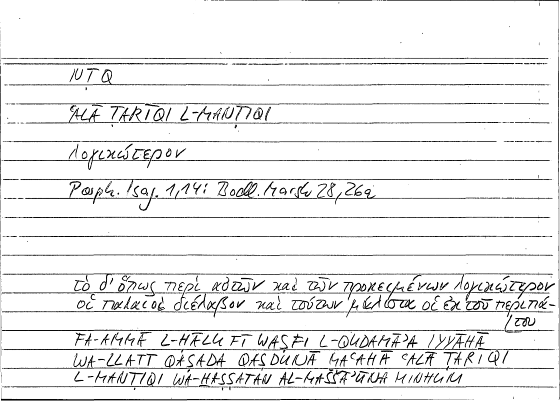 NṬQ
ʿALĀ ṬARĪQI L-MANṬIQI
λογικώτερον
Porph. Isag. 1,14: Bodl. Marsh 28, 26a
τὸ δ' ὅπως περὶ αὐτῶν καὶ τῶν προκειμένων λογικώτερον
οἱ παλαιοὶ διέλαβον καὶ τούτων μάλιστα οἱ ἐκ τοῦ περιπά-
του
FA-AMMĀ L-ḤĀLU FĪ WAṢFI L-QUDAMĀʾA IYYĀHĀ
WA-LLATĪ QAṢADA QAṢDUNĀ MAʿAHĀ ʿALĀ ṬARĪQI
L-MANṬIQI WA-ḪĀṢṢATAN AL-MAŠŠĀʾŪNA MINHUM